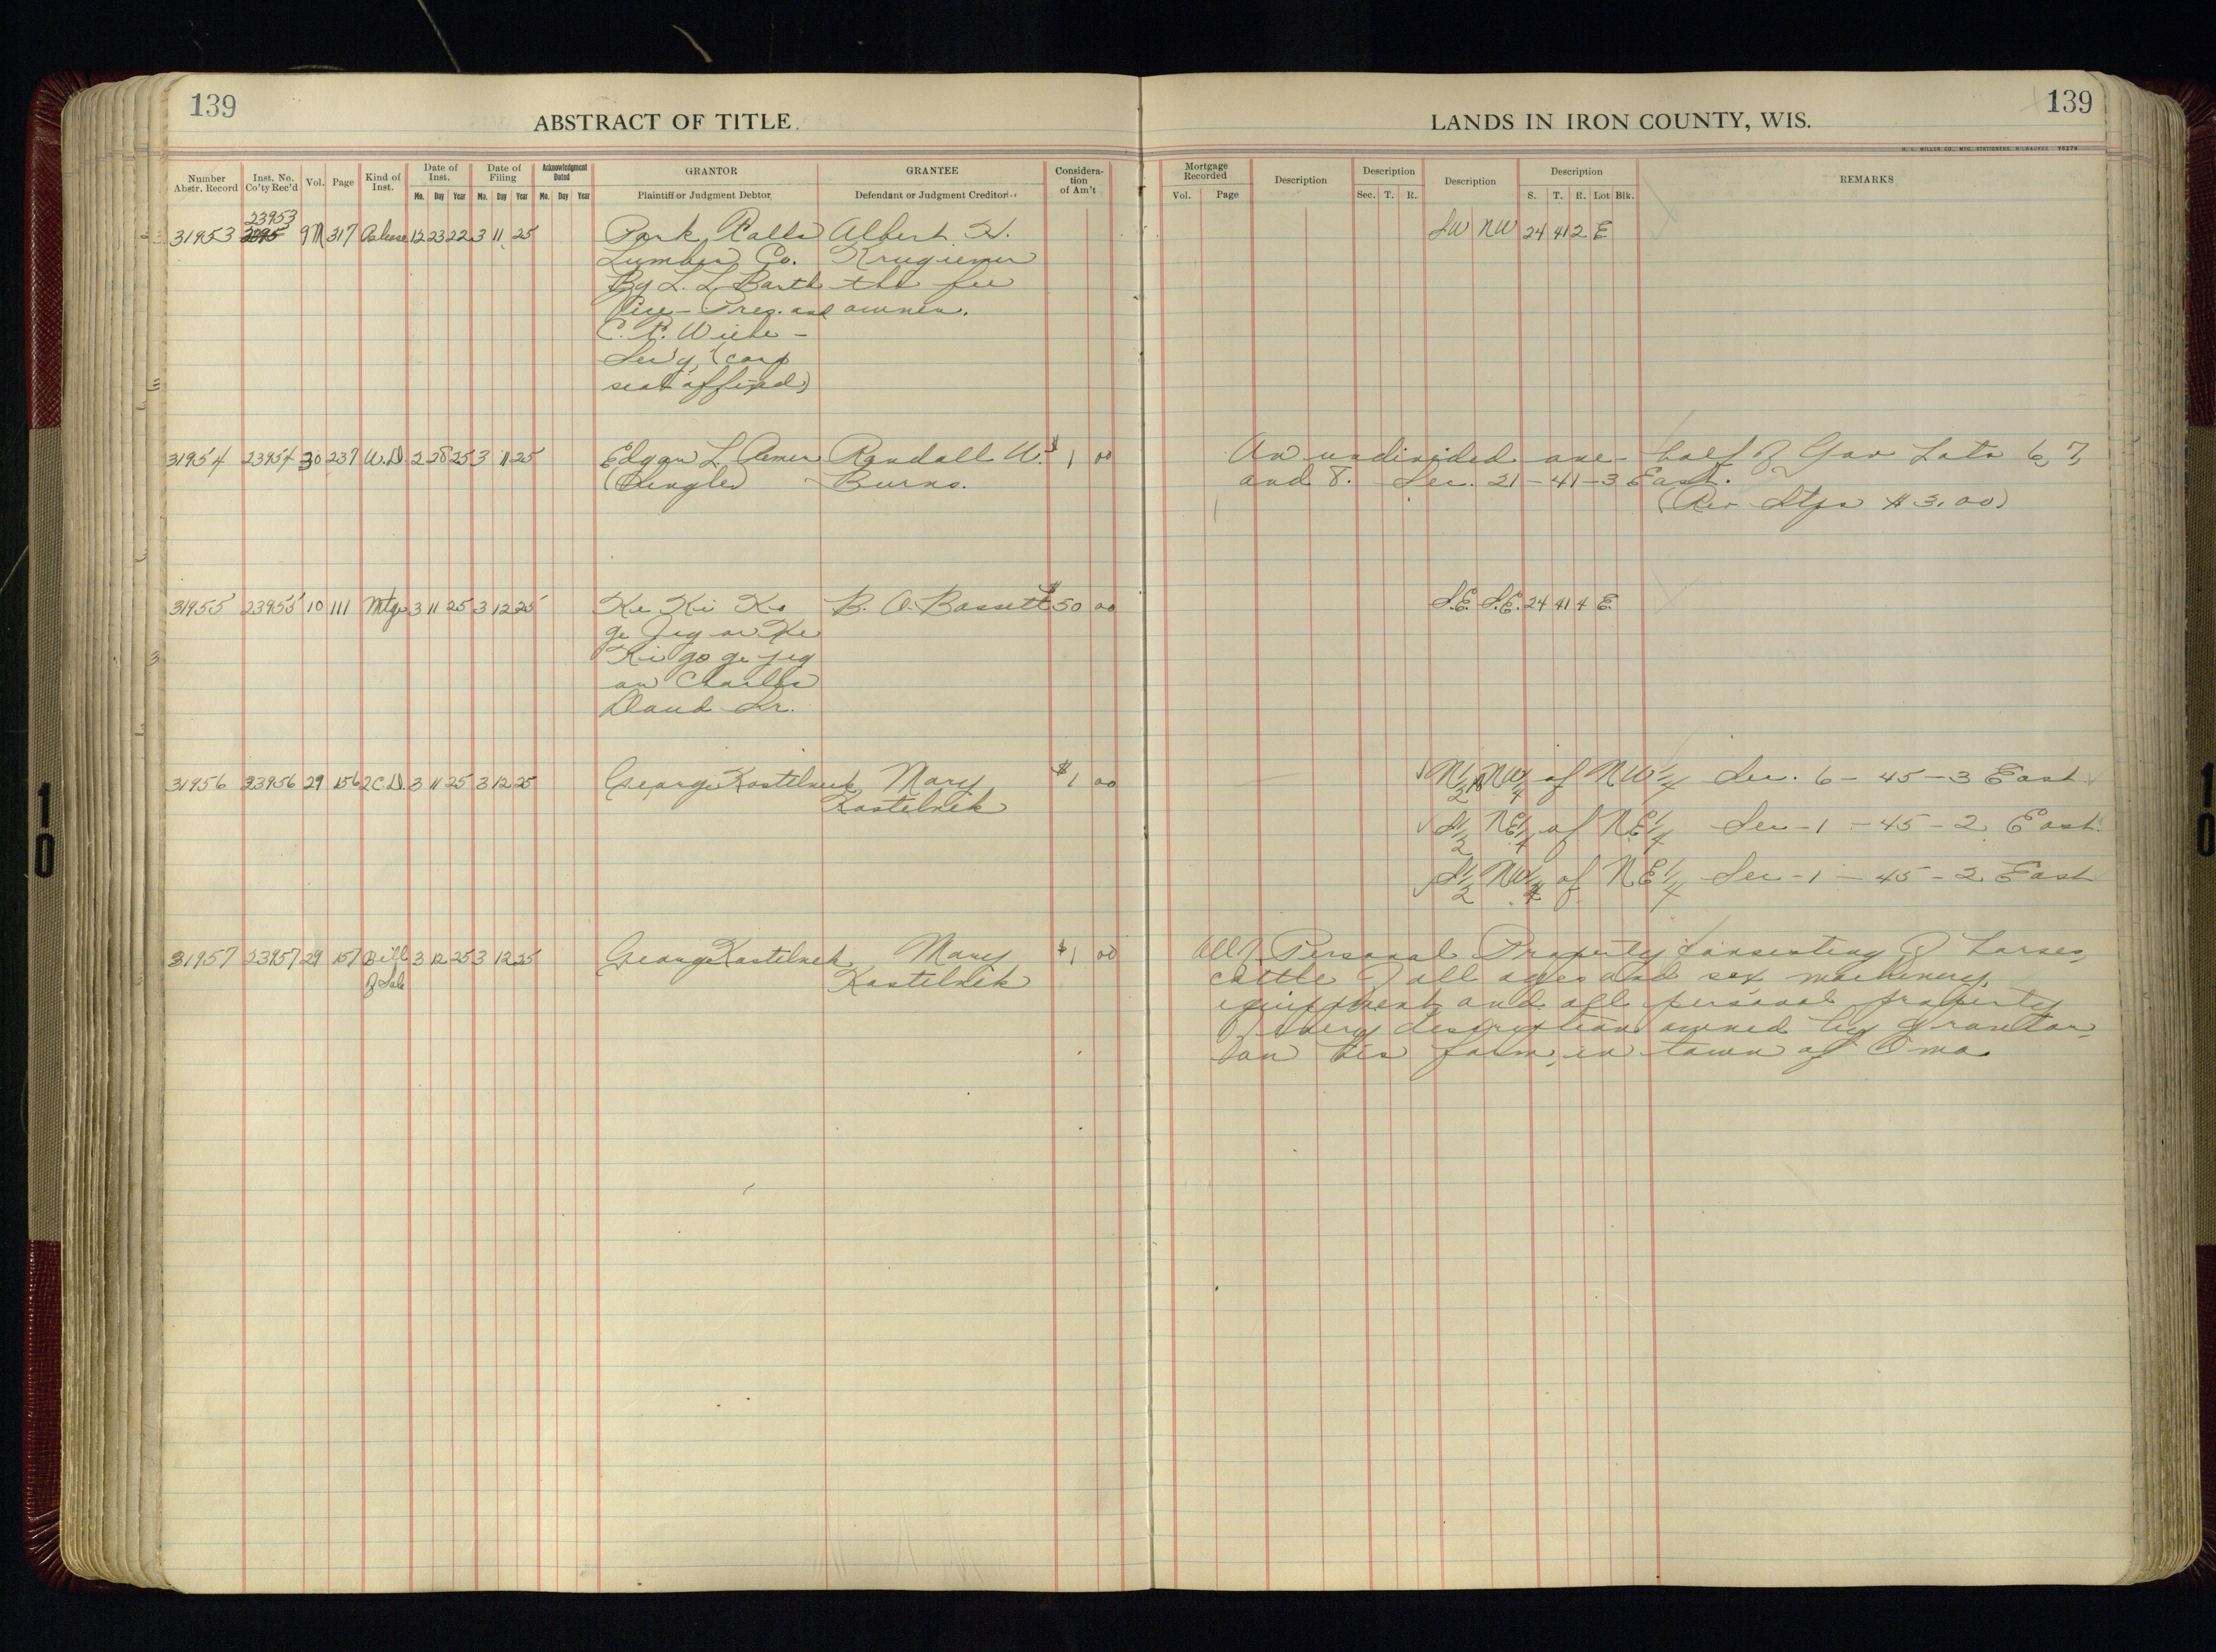 139
ABSTRACT OF TITLE
LANDS IN IRON COUNTY, WIS.
139
H. C. MILLER CO., MFG. STATIONERS, MILWAUKEE
Number Abstr. Record | Inst. No. Co'ty Rec'd | Vol. | Page | Kind of Inst. | Date of Inst. Mo. Day Year | Date of Filing Mo. Day Year | Acknowledgment Dated Mo. Day Year | GRANTOR Plaintiff or Judgment Debtor | GRANTEE Defendant or Judgment Creditor | Considera-tion of Am't
Mortgage Recorded Vol. Page | Description | Description Sec. T. R. | Description | Description S. T. R. Lot Blk. | REMARKS
23953
31953 9M 317 Release 12 23 22 3 11 25 Park Falls Albert H. SW NW 24 41 2 E
Lumber Co.
By L. L. Barth the fee
Vice-Pres. and owner.
C. R. Wiehe -
Sec'y, (corp
seal affixed)
31954 23954 30 237 W.D. 2 28 25 3 11 25 Edgar L. Randall W. $1 00 An undivided one-half of Gov Lots 6, 7,
(Single) Burns. and 8. Sec. 21-41-3 East.
(Rev Stps $3.00)
31955 23955 10 111 Mtge 3 11 25 3 12 25 Ke Ki Ko B. A. Bassett $50 00 S.E. S.E. 24 41 4 E.
ge Jeg or Ke
Ki go ge jeg
or Charlie
Sr.
31956 23956 29 156 2C.D. 3 11 25 3 12 25 George Kostelnek Mary $1 00 N1/2 NW1/4 of NW1/4 Sec. 6-45-3 East
Kostelnek
S1/2 NE1/4 of NE1/4 Sec-1-45-2 East
S1/2 NW1/4 of NE1/4 Sec-1-45-2 East
31957 23957 29 157 Bill 3 12 25 3 12 25 George Kostelnek Mary $1 00 All Personal Property consisting of horses,
of Sale Kostelnek cattle of all ages and sex, machinery,
equipment and all personal property
of every description owned by grantor
on his farm, in town of Oma.